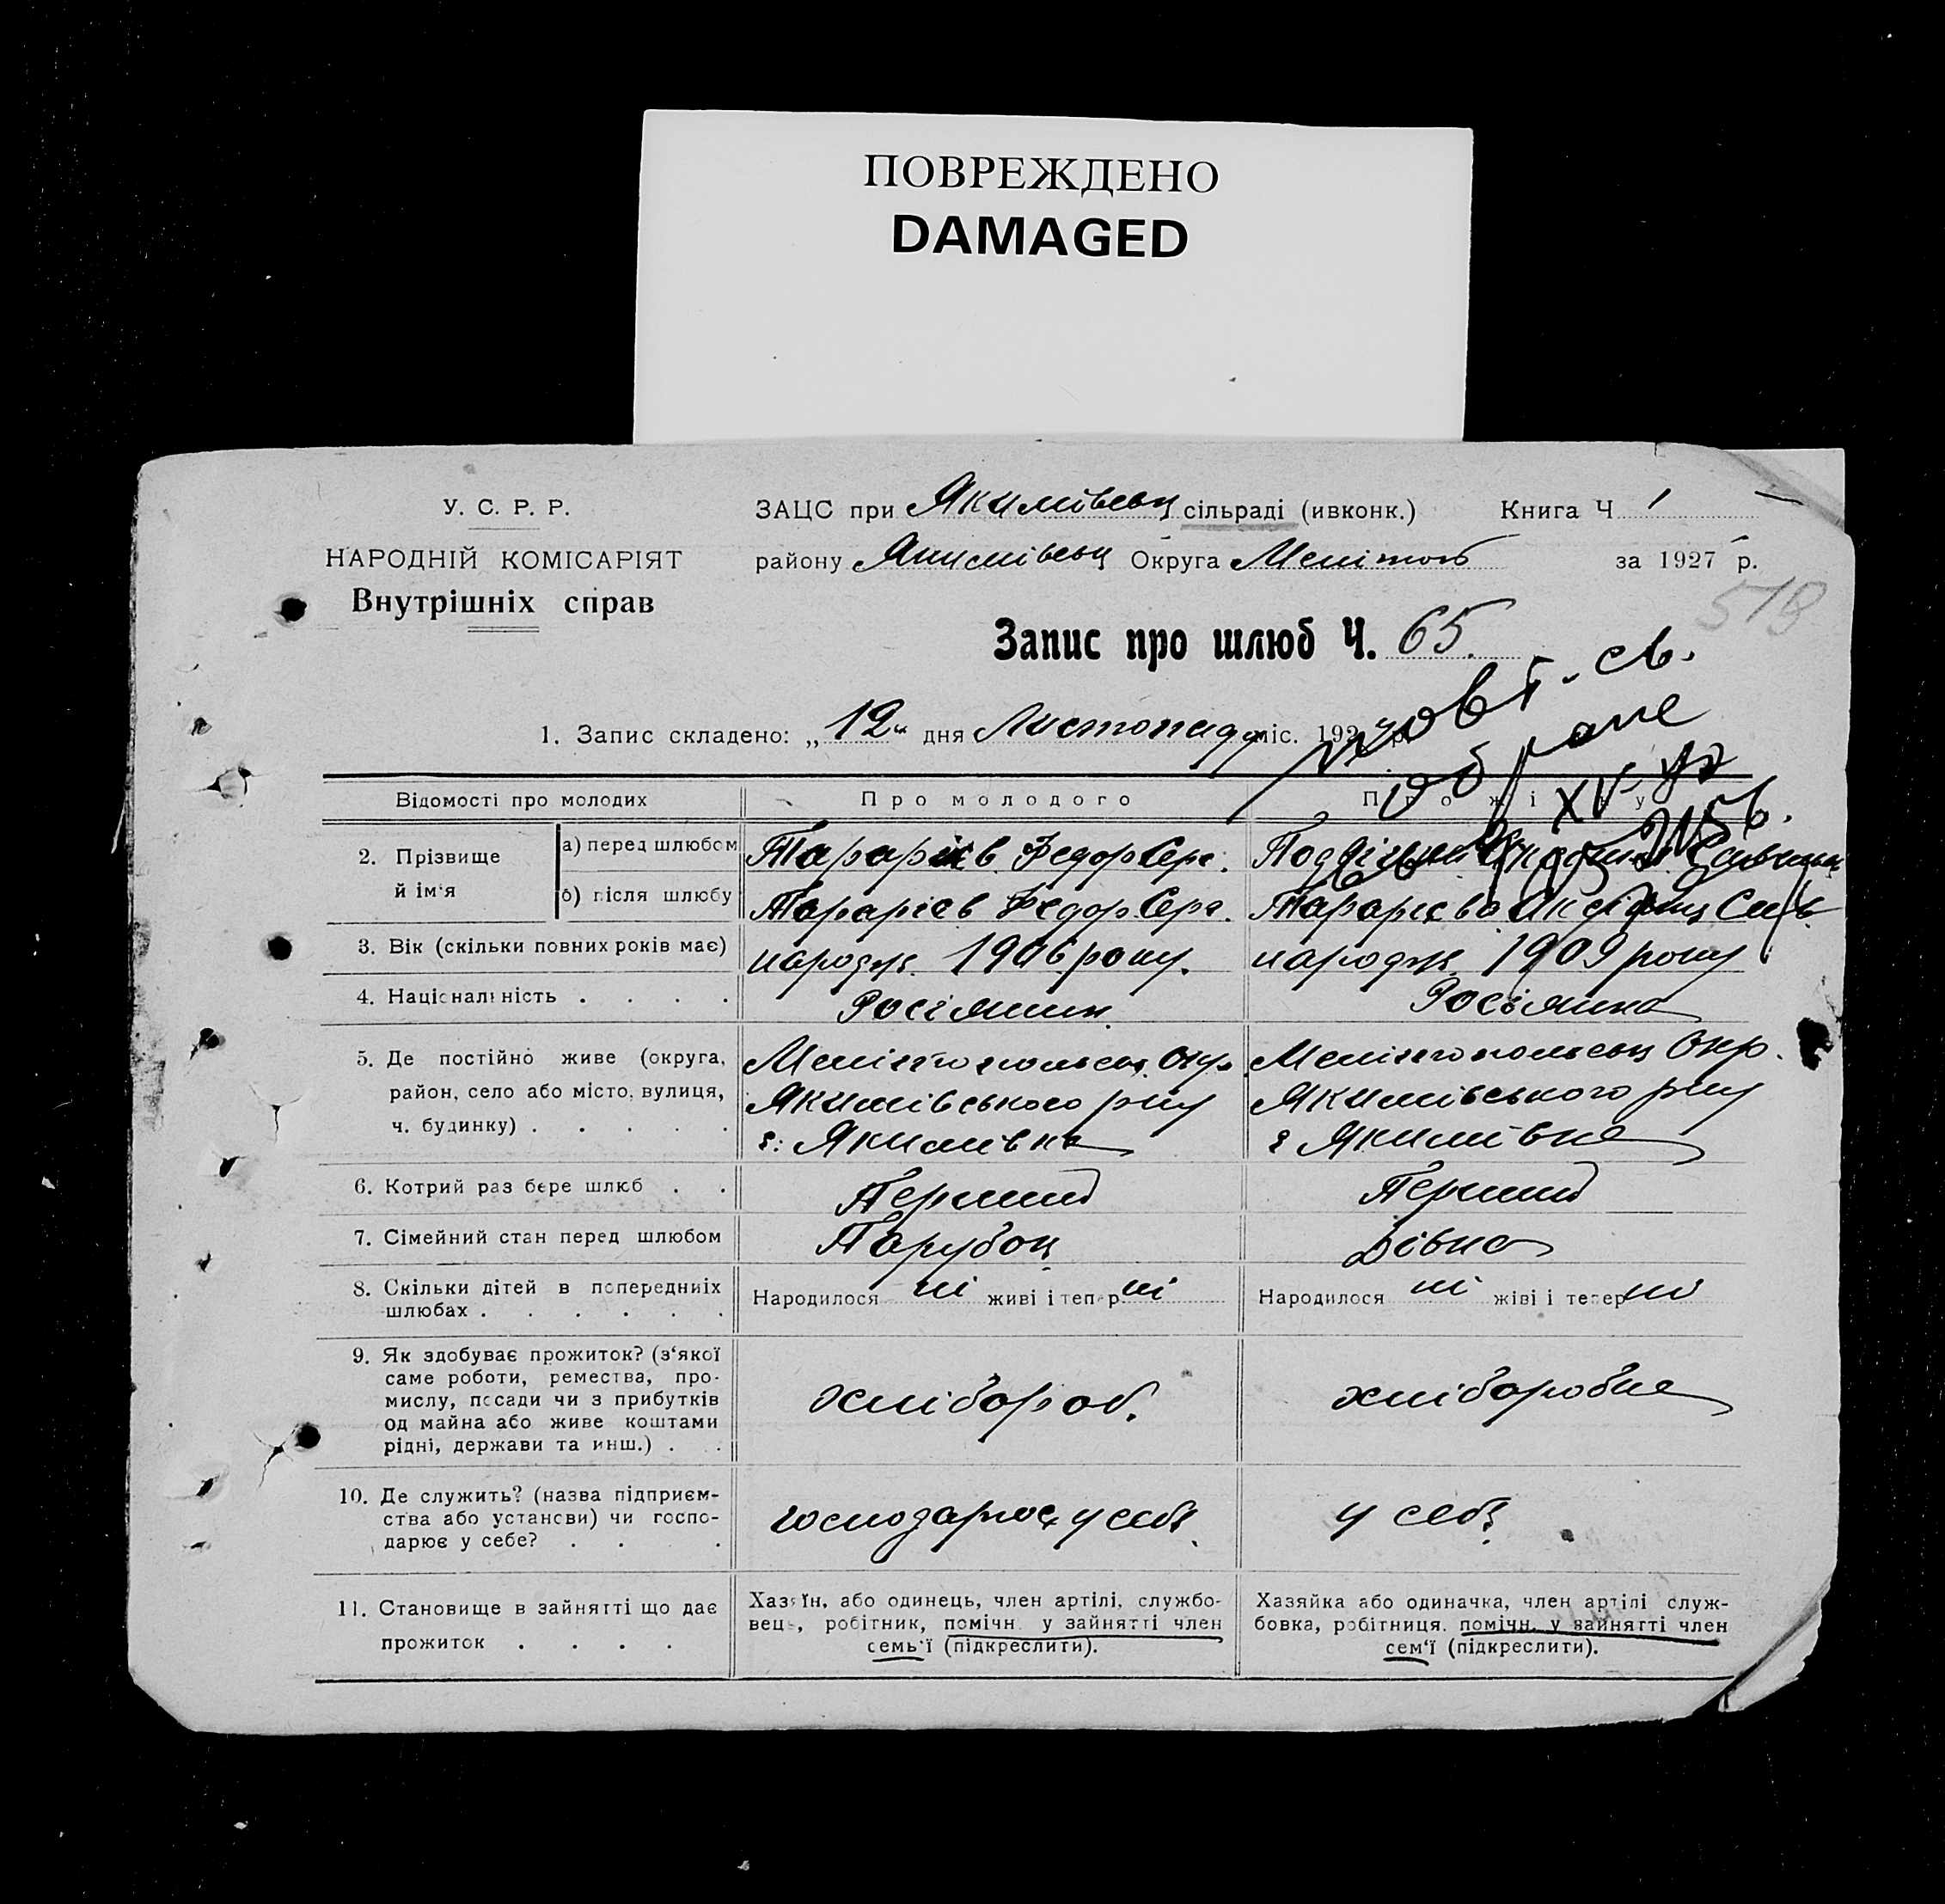 ПОВРЕЖДЕНО
DAMAGED
У. С. Р. Р.
НАРОДНІЙ КОМІСАРІЯТ
Внутрішніх справ
ЗАЦС при Якимівськ сільраді (ивконк.) Книга Ч 1
району Якимівськ Округа Мелітоп за 1927 р.
518
Запис про шлюб Ч. 65.
1. Запис складено: „12" дня Листопаду міс. 1927 р.
повт. св.
Відомості про молодих
Про молодого
Про жінку
2. Прізвище й ім'я
а) перед шлюбом
Тарарієв Федор Серг.
б) після шлюбу
Тарарієв Федор Серг.
Тарарієва
3. Вік (скільки повних років має)
народж. 1906 року.
народж. 1909 року
4. Національність . . . .
Росіянин
Росіянка
5. Де постійно живе (округа, район, село або місто, вулиця, ч. будинку) . . . . .
Мелітопольськ. Окр.
Якимівського р-ну
с. Якимівка
Мелітопольськ Окр.
Якимівського р-ну
с Якимівка
6. Котрий раз бере шлюб . .
Перший
Перший
7. Сімейний стан перед шлюбом
Парубок
Дівка
8. Скільки дітей в попередніх шлюбах . . . . . .
Народилося ні живі і тепер ні
Народилося ні жіві і тепер ні
9. Як здобуває прожиток? (з'якої саме роботи, ремества, промислу, посади чи з прибутків од майна або живе коштами рідні, держави та инш.) . .
хлібороб.
хліборобка
10. Де служить? (назва підприємства або установи) чи господарює у себе? . . .
господарює у себе
у себе
11. Становище в зайнятті що дає прожиток . . . .
Хазяїн, або одинець, член артілі, службовець, робітник, помічн. у зайнятті член семь'ї (підкреслити).
Хазяйка або одиначка, член артілі службовка, робітниця. помічн. у зайнятті член сем'ї (підкреслити).